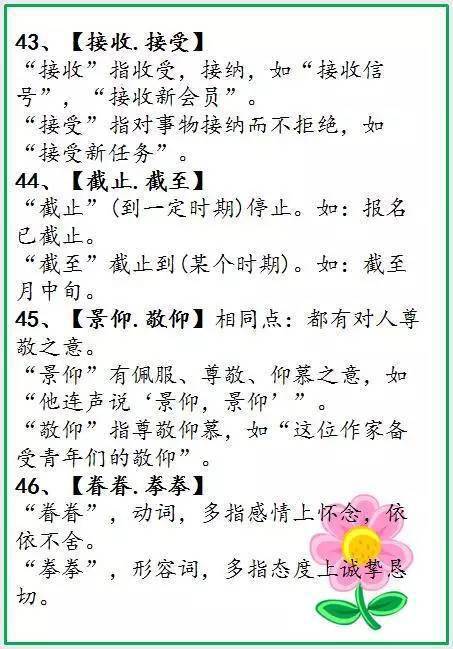 43、【接收.接受】
“接收”指收受，接纳，如“接收信
号”，“接收新会员”。
“接受”指对事物接纳而不拒绝，如
“接受新任务”。
44、【截止.截至】
“截止”(到一定时期)停止。如：报名
已截止。
“截至”截止到(某个时期)。如：截至
月中旬。
45、【景仰.敬仰】相同点：都有对人尊
敬之意。
“景仰”有佩服、尊敬、仰慕之意，如
“他连声说‘景仰，景仰’”。
“敬仰”指尊敬仰慕，如“这位作家备
受青年们的敬仰”。
46、【眷眷.拳拳】
“眷眷”，动词，多指感情上怀念，依
依不舍。
“拳拳”，形容词，多指态度上诚挚恳
切。